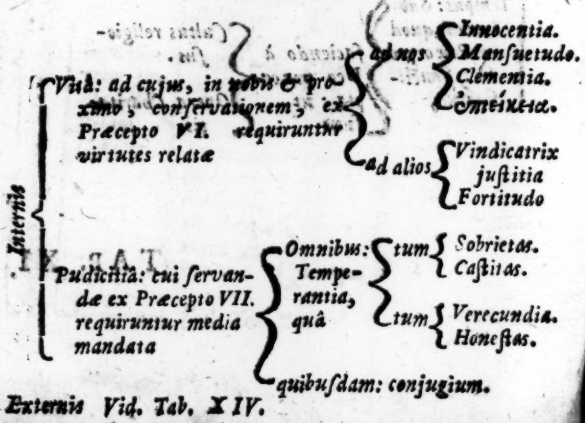 Internis
Vitâ: ad cujus, in nobis & pro-
ximo, conservationem, ex
Præcepto VI. requiruntur
virtutes relatæ
ad nos
Innocentia.
Mansuetudo.
Clementia.
ἐπιείκεια.
ad alios
Vindicatrix
justitia
Fortitudo
Pudicitiâ: cui servan-
dæ ex Præcepto VII.
requiruntur media
mandata
Omnibus:
Tempe-
rantia,
quâ
tum
Sobrietas.
Castitas.
tum
Verecundia.
Honestas.
quibusdam: conjugium.
Externis Vid. Tab. XIV.